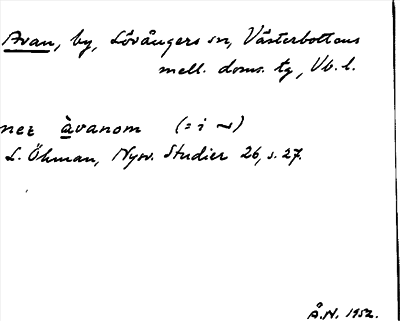 Avan, by, Lövångers sn, Västerbottens
mell. doms. tg, Vb. l.
nez àvanom (= i ~)
L. Öhman, Nysv. Studier 26, s. 27.
Å.N. 1952.